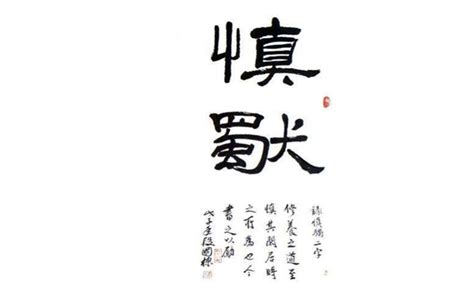 慎
獨
錄慎獨二字
修養之道至
慎其閒居時
之所為也今
書之以勵
戊子